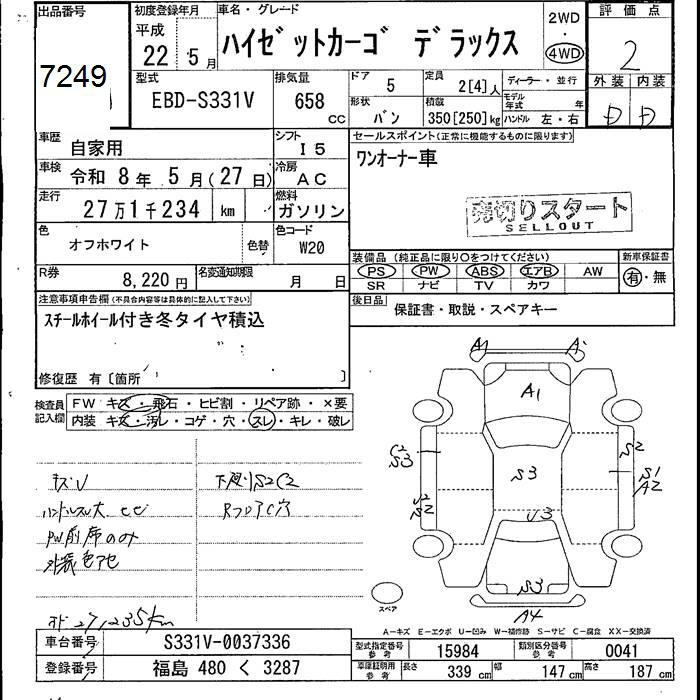 出品番号
7249
初度登録年月
平成
22 5月
車名・グレード
ハイゼットカーゴ デラックス
2WD
・
4WD
評価点
2
外装 内装
D D
型式
EBD-S331V
排気量
658
cc
ドア
5
定員
2[4]人
ディーラー・並行
モデル年式 年
形状
バン
積載
350[250]kg
ハンドル 左・右
車歴
自家用
シフト
I5
セールスポイント(正常に機能するものに限ります)
ワンオーナー車
車検
令和 8年 5月(27日)
冷房
AC
走行
27万1千234 km
燃料
ガソリン
売切りスタート
SELLOUT
色
オフホワイト
色替
色コード
W20
装備品 (純正品に限り○をつけてください)
PS PW ABS エアB AW
SR ナビ TV カワ
新車保証書
有・無
R券
8,220円
名変通知期限
月 日
後日品
保証書・取説・スペアキー
注意事項申告欄(不具合内容等は具体的に記入して下さい)
スチールホイール付き冬タイヤ積込
修復歴 有〔箇所 〕
検査員記入欄
FW キズ・飛石・ヒビ割・リペア跡・×要
内装 キズ・汚レ・コゲ・穴・スレ・キレ・破レ
A1
A1
S3
C2
S3
S2
S1
A2
S2
U3
S3
A4
キズU
下廻りS2C2
ハンドルスレ大 ヒビ
RフロアC穴
PW前席のみ
外装色アセ
メーター 271,235km
スペア
A－キズ E－エクボ U－凹み W－補修跡 S－サビ C－腐食 XX－交換済
車台番号
S331V-0037336
型式指定番号
参考
15984
類別区分番号
参考
0041
登録番号
福島 480 く 3287
車庫証明用
参考
長さ
339 cm
幅
147 cm
高さ
187 cm